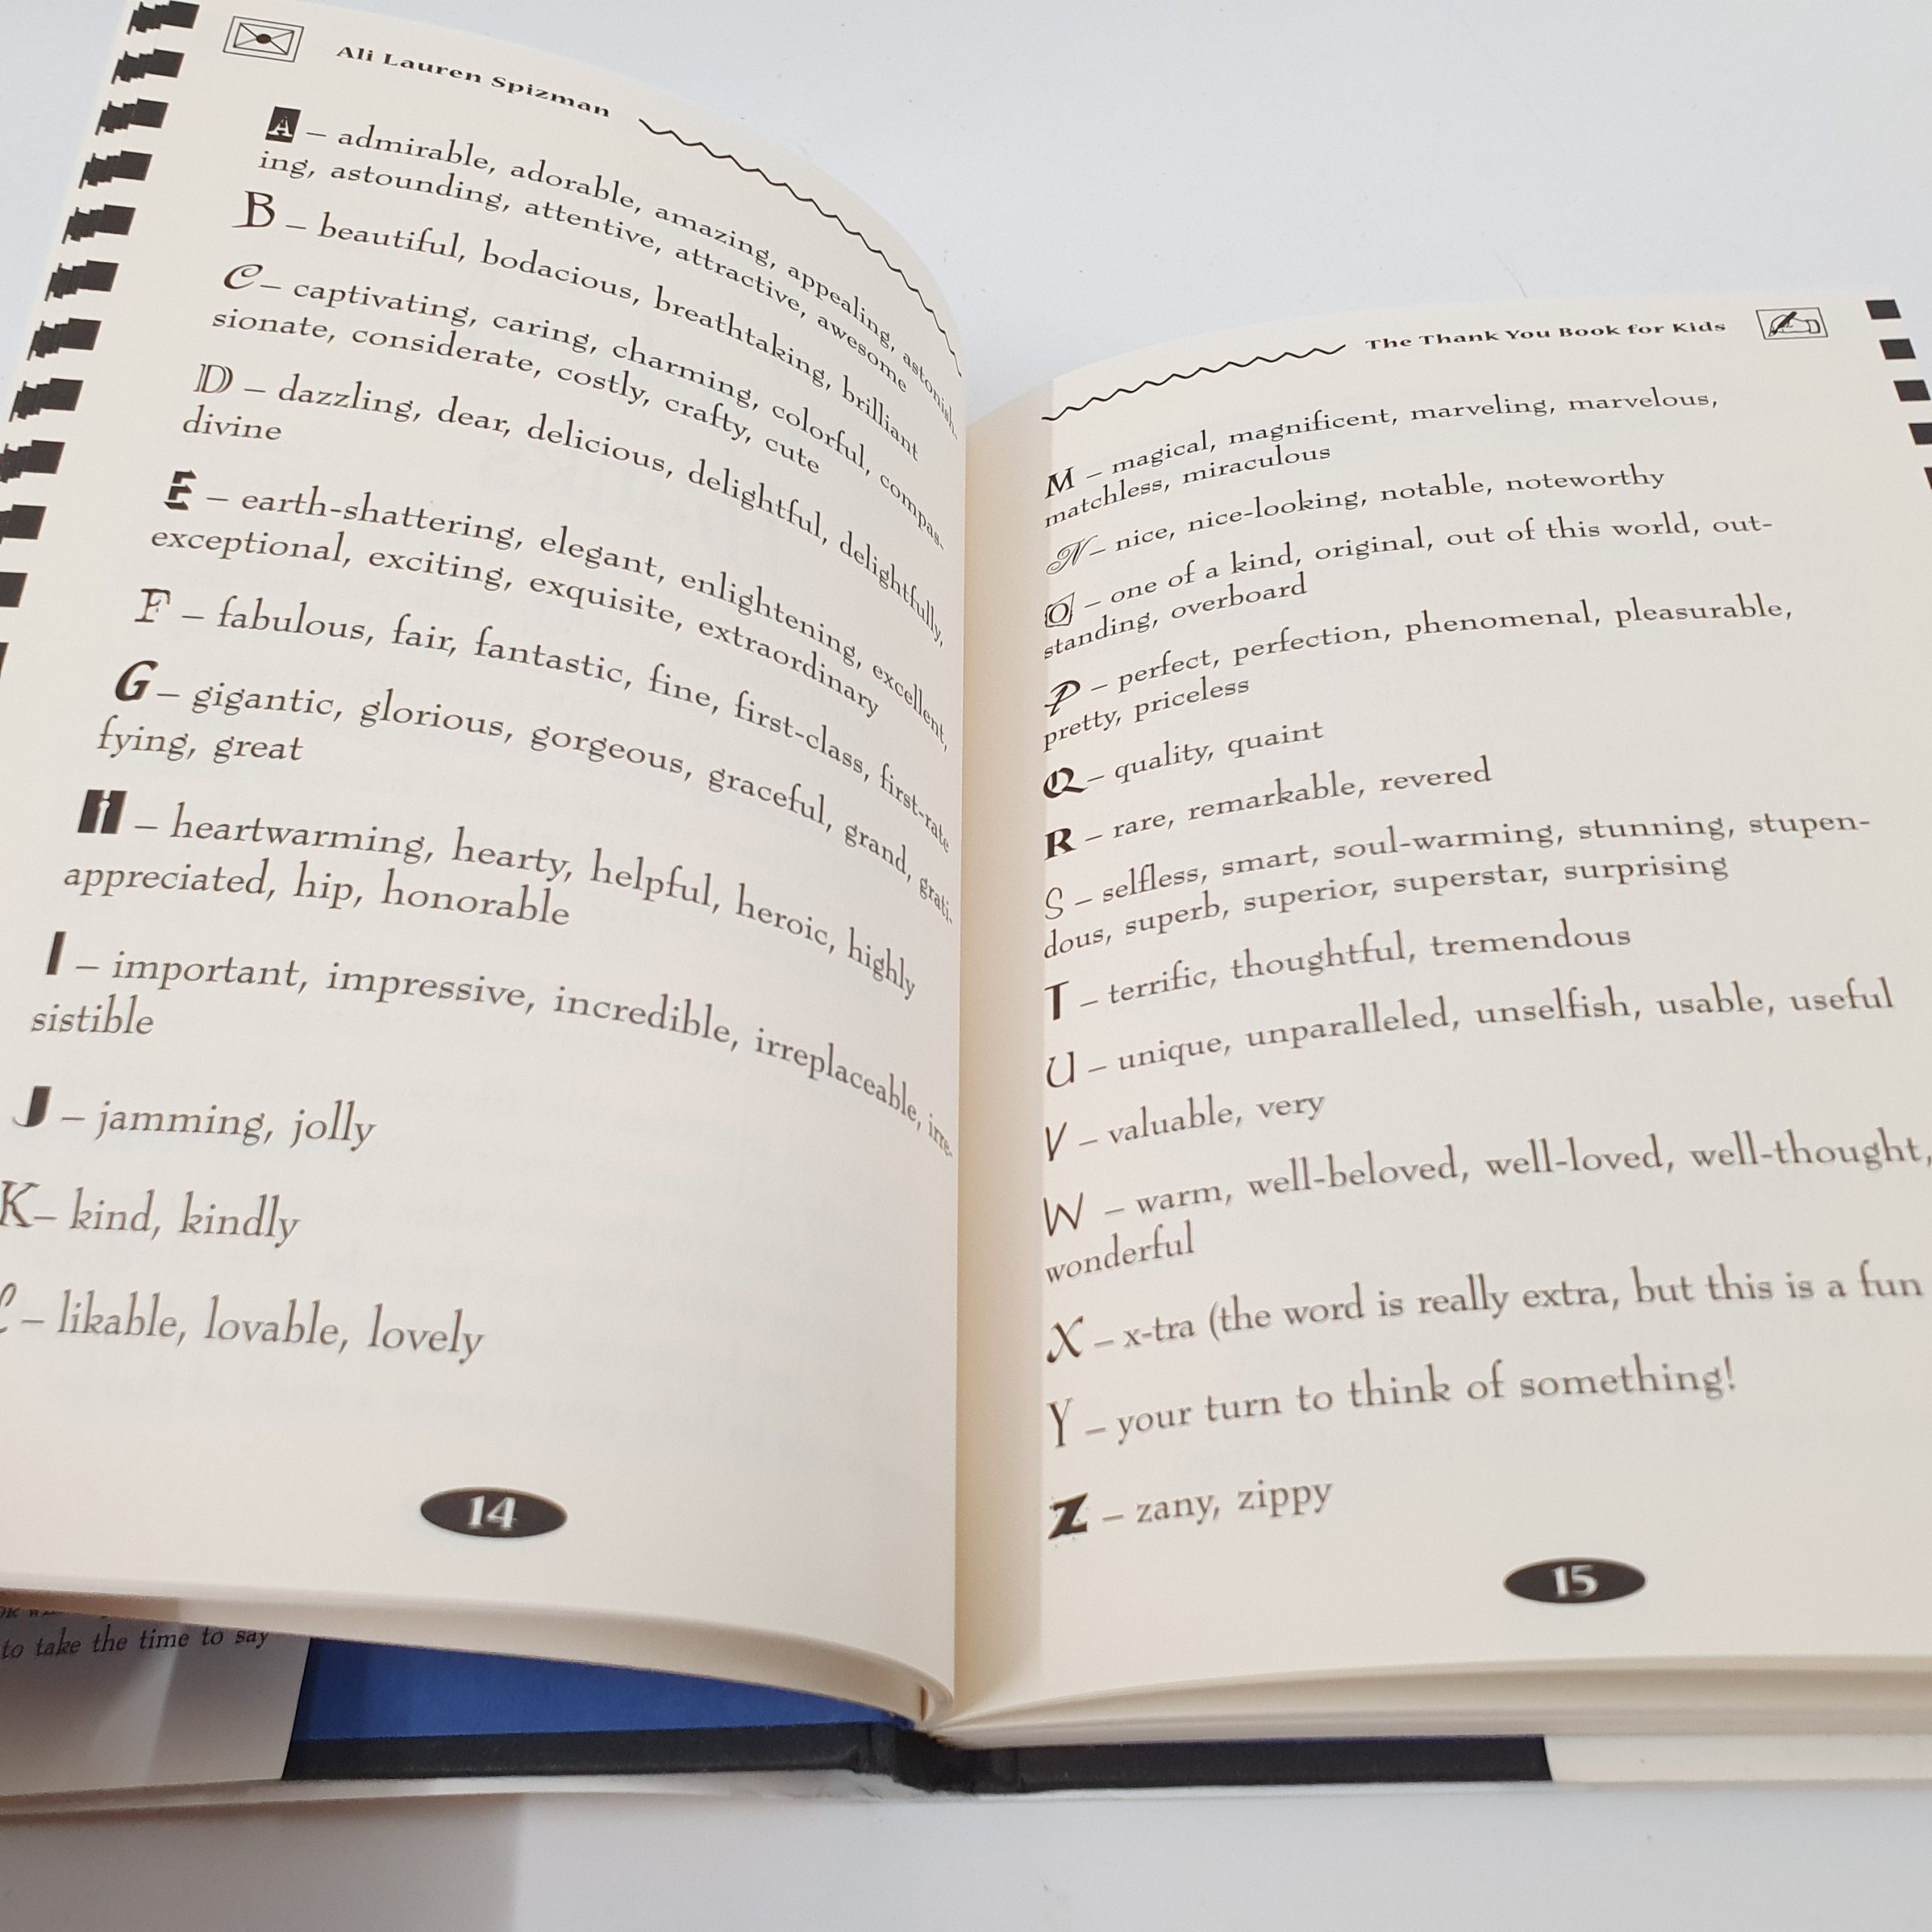 Ali Lauren Spizman
A – admirable, adorable, amazing, appealing, astonish-
ing, astounding, attentive, attractive, awesome
B – beautiful, bodacious, breathtaking, brilliant
C – captivating, caring, charming, colorful, compas-
sionate, considerate, costly, crafty, cute
D – dazzling, dear, delicious, delightful, delightfully,
divine
E – earth-shattering, elegant, enlightening, excellent,
exceptional, exciting, exquisite, extraordinary
F – fabulous, fair, fantastic, fine, first-class, first-rate
G – gigantic, glorious, gorgeous, graceful, grand, grati-
fying, great
H – heartwarming, hearty, helpful, heroic, highly
appreciated, hip, honorable
I – important, impressive, incredible, irreplaceable, irre-
sistible
J – jamming, jolly
K – kind, kindly
L – likable, lovable, lovely
14
to take the time to say
The Thank You Book for Kids
M – magical, magnificent, marveling, marvelous,
matchless, miraculous
N – nice, nice-looking, notable, noteworthy
O – one of a kind, original, out of this world, out-
standing, overboard
P – perfect, perfection, phenomenal, pleasurable,
pretty, priceless
Q – quality, quaint
R – rare, remarkable, revered
S – selfless, smart, soul-warming, stunning, stupen-
dous, superb, superior, superstar, surprising
T – terrific, thoughtful, tremendous
U – unique, unparalleled, unselfish, usable, useful
V – valuable, very
W – warm, well-beloved, well-loved, well-thought,
wonderful
X – x-tra (the word is really extra, but this is a fun
Y – your turn to think of something!
Z – zany, zippy
15